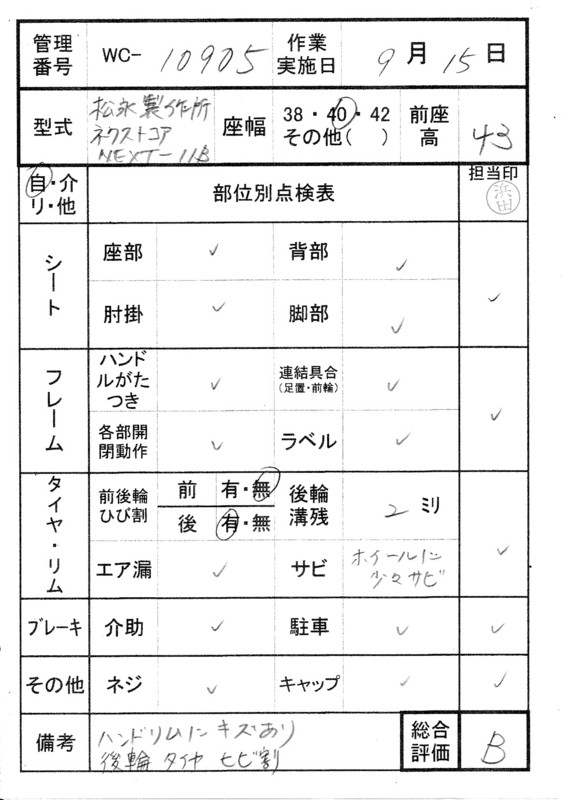 管理番号 WC- 10905 作業実施日 9月15日
型式 松永製作所 ネクストコア NEXT-11B 座幅 38・40・42 その他( ) 前座高 43
自・介 リ・他 部位別点検表 担当印 浜田
シート 座部 ✓ 背部 ✓ ✓
肘掛 ✓ 脚部 ✓
フレーム ハンドルがたつき ✓ 連結具合 (足置・前輪) ✓ ✓
各部開閉動作 ✓ ラベル ✓
タイヤ・リム 前後輪ひび割 前 有・無 後 有・無 後輪溝残 2 ミリ ✓
エア漏 ✓ サビ ホイールに少々サビ
ブレーキ 介助 ✓ 駐車 ✓ ✓
その他 ネジ ✓ キャップ ✓ ✓
備考 ハンドリムにキズあり
後輪タイヤヒビ割
総合評価 B